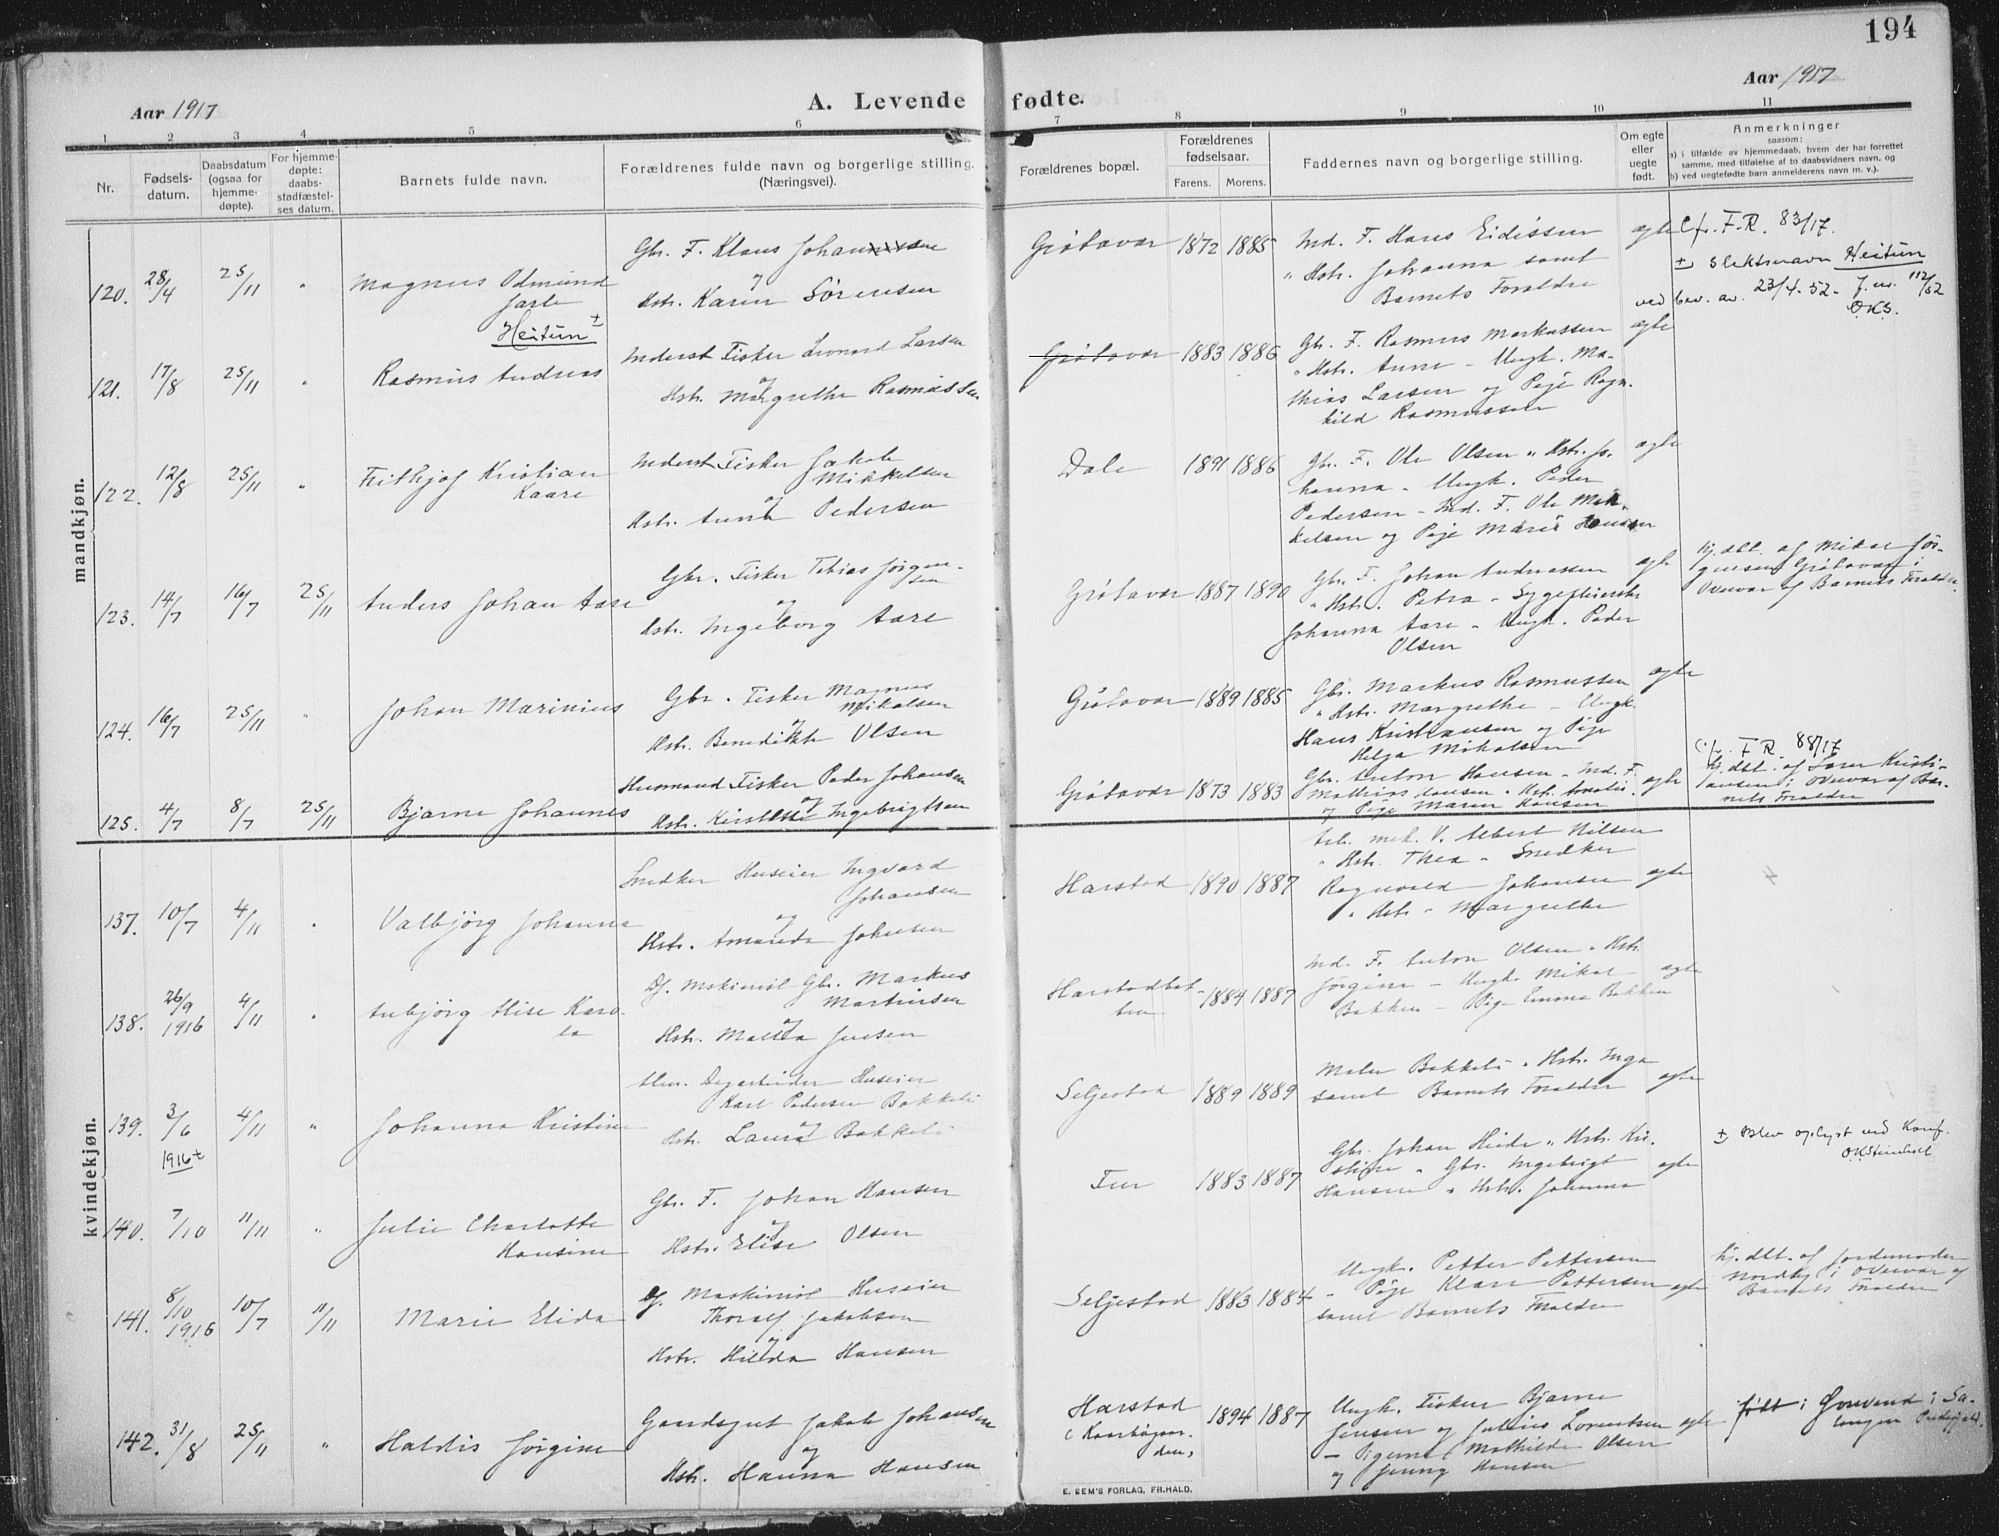 194
Aar 1917
A. Levende fødte.
Aar 1917
1 2 3 4 5 6 7 8 9 10 11
Nr.
Fødsels-
datum.
Daabsdatum
(ogsaa for
hjemme-
døpte).
For hjemme-
døpte:
daabs-
stadfæstel-
ses datum.
Barnets fulde navn.
Forældrenes fulde navn og borgerlige stilling.
(Næringsvei).
Forældrenes bopæl.
Forældrenes
fødselsaar.
Farens. Morens.
Faddernes navn og borgerlige stilling.
Om egte
eller
uegte
født.
Anmerkninger
saasom:
a) i tilfælde av hjemmedaab, hvem der har forrettet
samme, med tilføielse af to daabsvidners navn, og
b) ved uegtefødte barn anmelderens navn m. v.).
mandkjøn.
120. 28/4 25/11 "
Magnus Odmund
Jarle
Heitun ±
Gbr. F. Klaus Johansen
og
Hstr. Karen Sørensen
Grøtavær 1872 1885
Ind. F. Hans Eidissen
" Hstr. Johanna samt
Barnets Foraldre
egte
Cfr. F.R. 83/17.
± Slektsnavn Heitun
ved bev. av. 23/4-52- J.nr. 112/52
O.K.S.
121. 17/8 25/11 "
Rasmus Andreas
Inderst Fisker Leonard Larsen
og
Hstr. Margrethe Rasmussen
Grøtavær 1883 1886
Gbr. F. Rasmus Markussen
" Hstr. Anne - Ungk. Ma-
thias Larsen og Pige Ragn-
hild Rasmussen
egte
122. 12/8 25/11 "
Frithjof Kristian
Kaare
Inderst Fisker Jakob
Mikkelsen
og
Hstr. Anna Pedersen
Dale 1891 1886
Gbr. F. Ole Olsen " Hstr. Jo-
hanna - Ungk. Peder
Pedersen - Ind. F. Ole Mik-
kelsen og Pige Marie Hansen
egte
123. 14/7 16/7 25/11
Anders Johan Aare
Gbr. Fisker Tobias Jørgen-
sen
og
Hstr. Ingeborg Aare
Grøtavær 1887 1890
Gbr. F. Johan Andreassen
" Hstr. Petra - Sygepleierske
Johanna Aare - Ungk. Peder
Olsen
egte
Hj. dbt. af Mikal Jør-
gensen Grøtavær i
Overvær af Barnets Foraldre.
124. 16/7 25/11 "
Johan Marinius
Gbr. Fisker Magnus
Mikalsen
og
Hstr. Benedikte Olsen
Grøtavær 1889 1885
Gbr. Markus Rasmussen
" Hstr. Margrethe - Ungk.
Hans Kristiansen og Pige
Helga Mikalsen
egte
125. 4/7 8/7 25/11
Bjarne Johannes
Husmand Fisker Peder Johansen
og
Hstr. Kirstine Ingebrigtsen
Grøtavær 1873 1883
Gbr. Anton Hansen - Ind. F.
Mathias Hansen " Hstr. Amalie
og Pige Maren Hansen
egte
Cfr. F R. 88/17
Hj. dbt. af Søren Kristi-
ansen i Overvær af Bar-
nets Foraldre
kvindekjøn.
137. 10/7 4/11 "
Valbjørg Johanna
Snedker Huseier Ingvard
Johansen
og
Hstr. Amanda Johnsen
Harstad 1890 1887
Arb. mek. V. Albert Nilsen
" Hstr. Thea - Snedker
Ragnvald Johansen
" Hstr - Margrethe
egte
138. 26/9 1916 4/11 "
Anbjørg Elise Karo-
la
Df. Maskinist Gbr. Markus
Martinsen
og
Hstr. Matea Jensen
Harstadbot-
ten
1884 1887
Ind. F. Anton Olsen " Hstr.
Jørgine - Ungk. Mikal
Bakken - Pige Emma Bakken
egte
139. 3/6 1916 ± 4/11 "
Johanna Kristine
Alm. Dagarbeider Huseier
Karl Pedersen Bakkeli
og
Hstr. Laura Bakkeli
Seljestad 1889 1889
Maler Bakkeli " Hstr. Inga
samt Barnets Foraldre
egte
± Blev oplyst ved Konf.
140. 7/10 11/11 "
Julie Charlotte
Hansine
Gbr. F. Johan Hansen
og
Hstr. Elise Olsen
1883 1887
Gbr. Johan Heide " Hstr. Kri-
stine " Gbr. Ingebrigt
Hansen " Hstr. Johanna
egte
141. 8/10 1916 10/7 11/11
Marie Elida
Df. Maskinist Huseier
Thoralf Jakobsen
og
Hstr. Hilda Hansen
Seljestad 1883 1884
Ungk. Petter Pettersen
" Pige Klara Pettersen
samt Barnets Foraldre
egte
hj. dbt. af Jordemoder
Nordby i Overvær af
Barnets Foraldre
142. 31/8 25/11 "
Haldis Jørgine
Gaardsgut Jakob Johansen
og
Hstr. Hanna Hansen
Harstad
1894 1887
Ungk. Fisker Bjarne
Jensen og Julius Lorentsen
- Pigerne Mathilde Olsen
og Jenny Hansen
egte
født i Grovend i Sa-
langen
E. SEM'S FORLAG, FR.HALD.